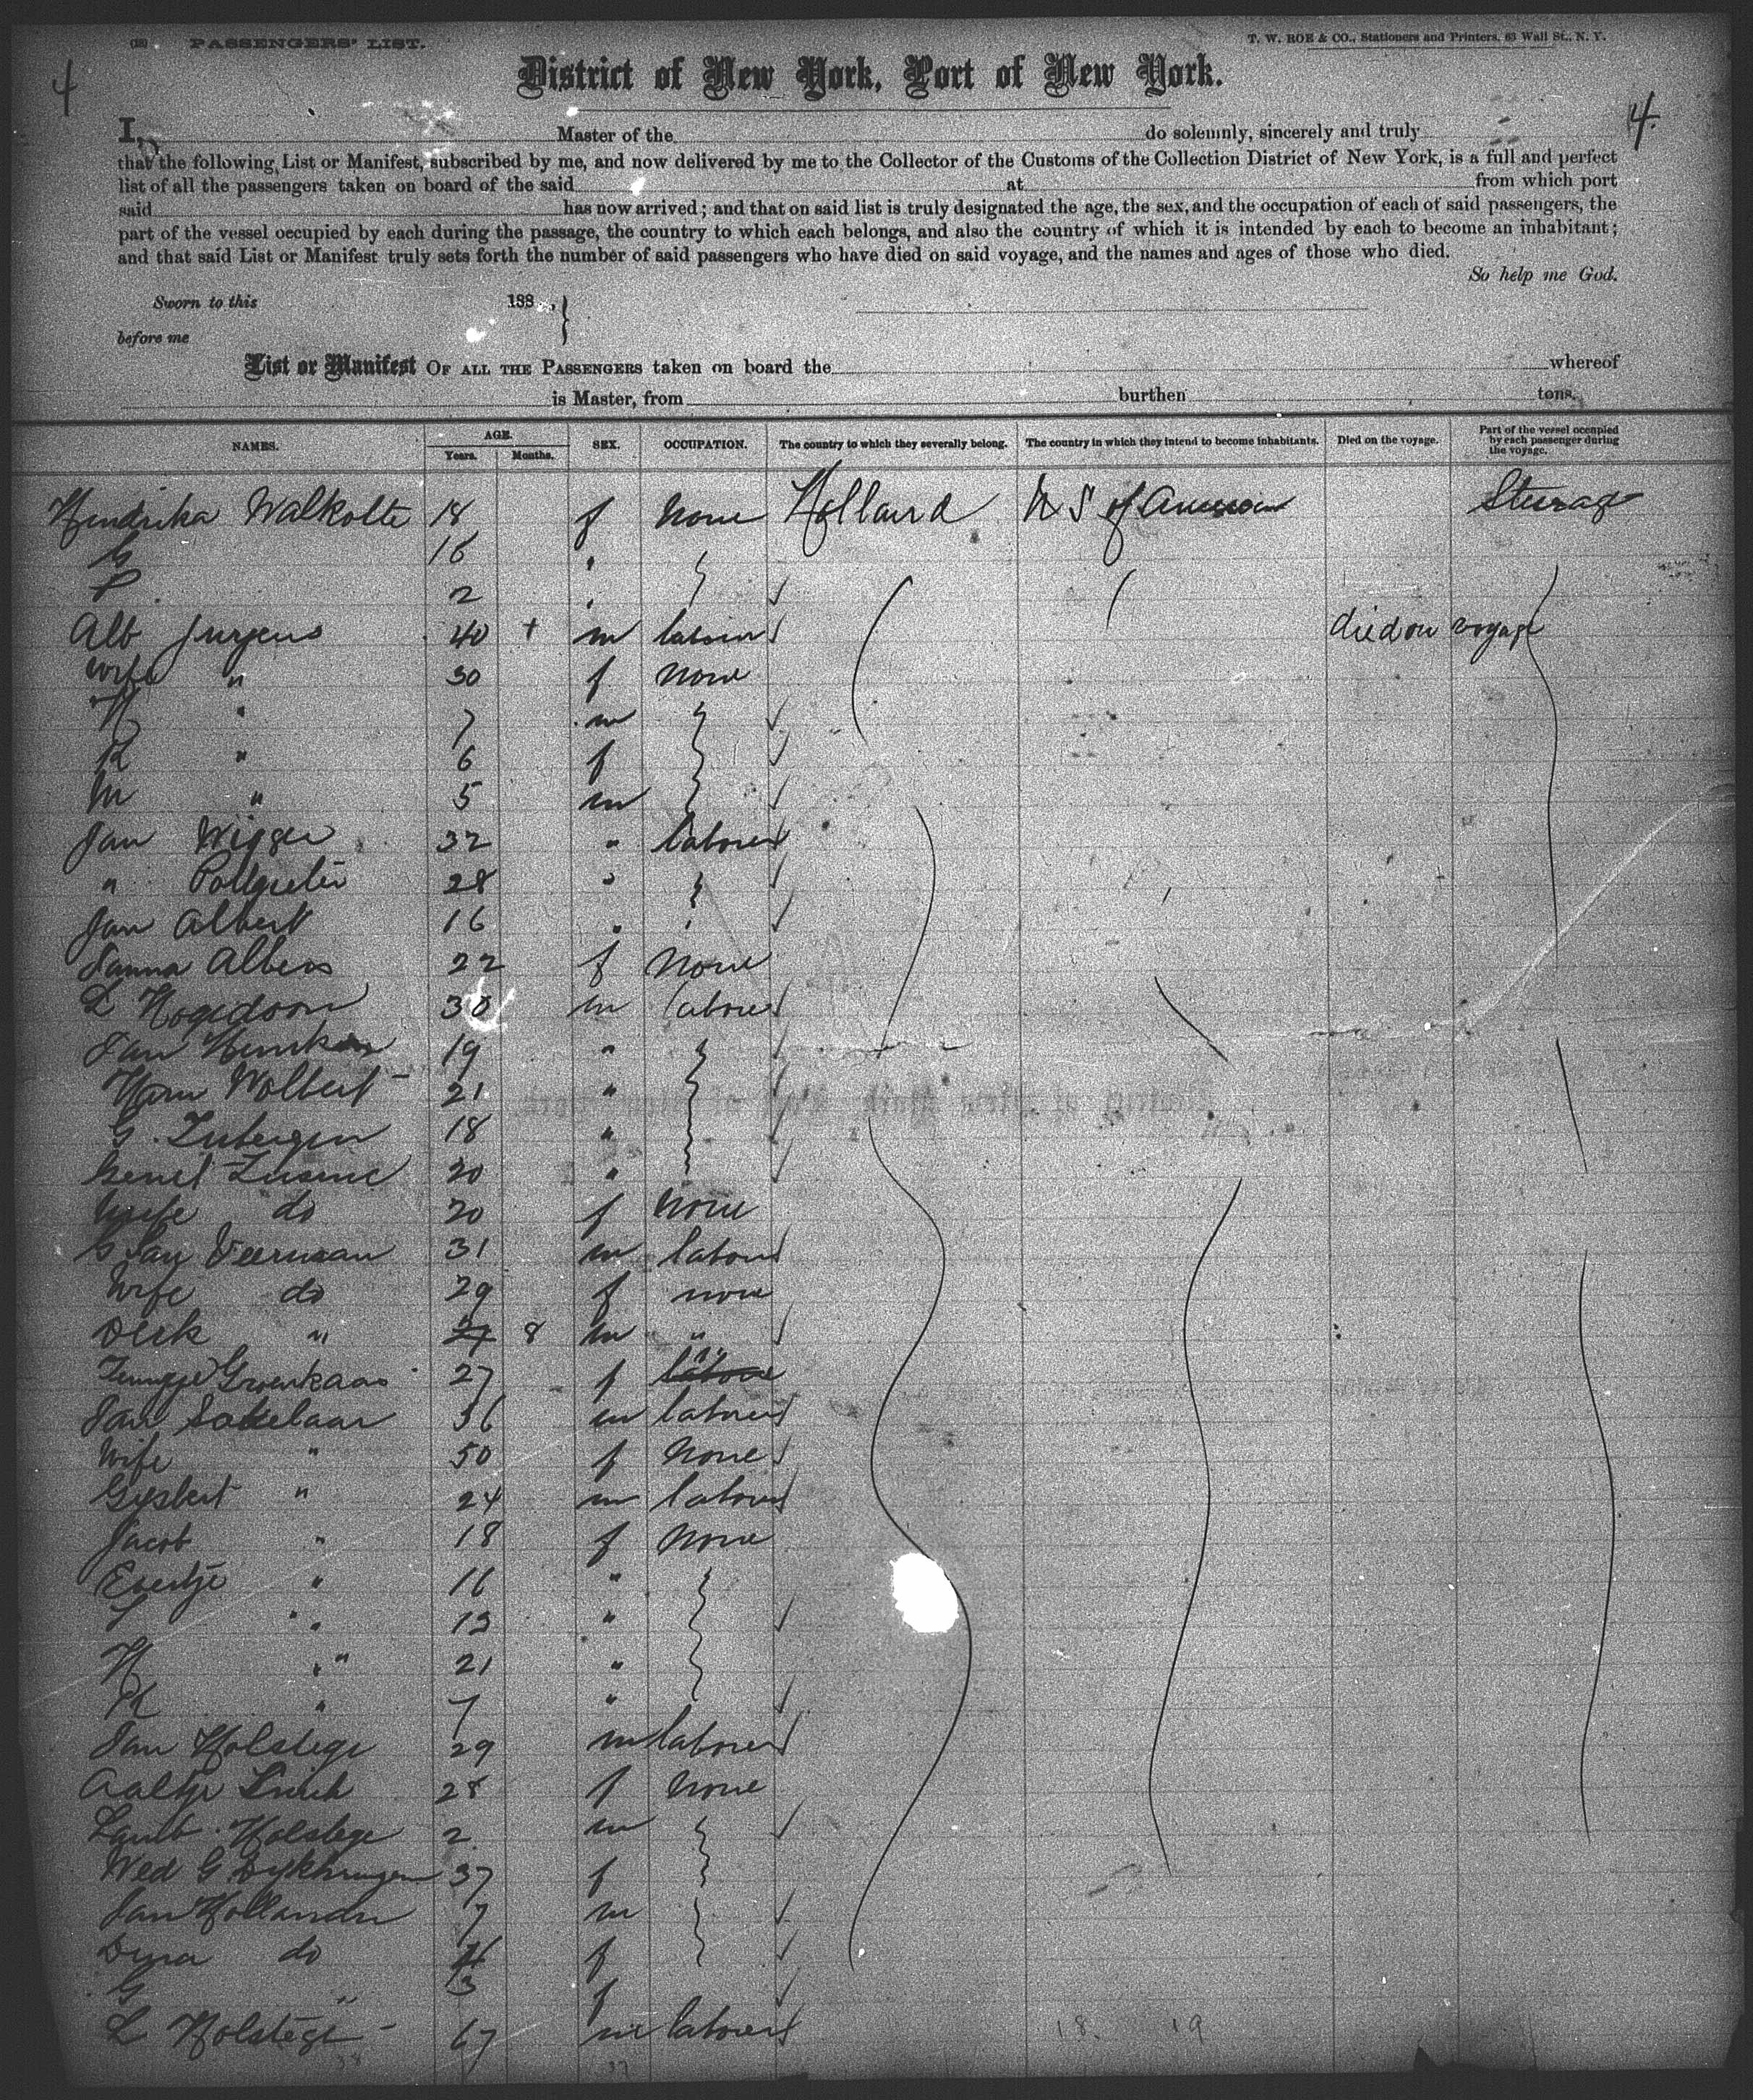 (18) PASSENGERS' LIST.
T. W. ROE & CO., Stationers and Printers, 63 Wall St., N. Y.
4
District of New York, Port of New York.
4.
I, Master of the do solemnly, sincerely and truly
that the following List or Manifest, subscribed by me, and now delivered by me to the Collector of the Customs of the Collection District of New York, is a full and perfect
list of all the passengers taken on board of the said at from which port
said has now arrived; and that on said list is truly designated the age, the sex, and the occupation of each of said passengers, the
part of the vessel occupied by each during the passage, the country to which each belongs, and also the country of which it is intended by each to become an inhabitant;
and that said List or Manifest truly sets forth the number of said passengers who have died on said voyage, and the names and ages of those who died.
So help me God.
Sworn to this 188 ,
before me
List or Manifest OF ALL THE PASSENGERS taken on board the whereof
is Master, from burthen tons.
NAMES. AGE. Years. Months. SEX. OCCUPATION. The country to which they severally belong. The country in which they intend to become inhabitants. Died on the voyage. Part of the vessel occupied by each passenger during the voyage.
Hendrika Walkotte 18 f None Holland U S of America Steerage
G 16 "
2 "
Alb Jurgens 40 + m labour died on voyage
Wife " 30 f None
H " 7 m
R " 6 f
M " 5 m
Jan Wigger 32 " laborer
" 28 "
Jan Albert 16 "
Janna Albers 22 f None
L Hogedoorn 30 m laborer
Jan 19 "
Harm Wolbert 21 "
G. 18 "
Gerrit 20 "
Wife do 20 f None
Veerman 31 m labour
Wife do 29 f none
Derk " 8 m "
27 f "
Jan 56 m laborer
Wife " 50 f None
Gysbert " 24 m labour
Jacob " 18 f None
Evertje " 16 "
" 13 "
H " 21 "
R " 7 "
Jan Holstege 29 m laborer
Aaltje 28 f None
Lamb. Holstege 2 m
Wed G. 37 f
Jan Hollander 7 m
Dyna do f
G " 3 f
L Holstege 67 m laborer
18. 19
38 37